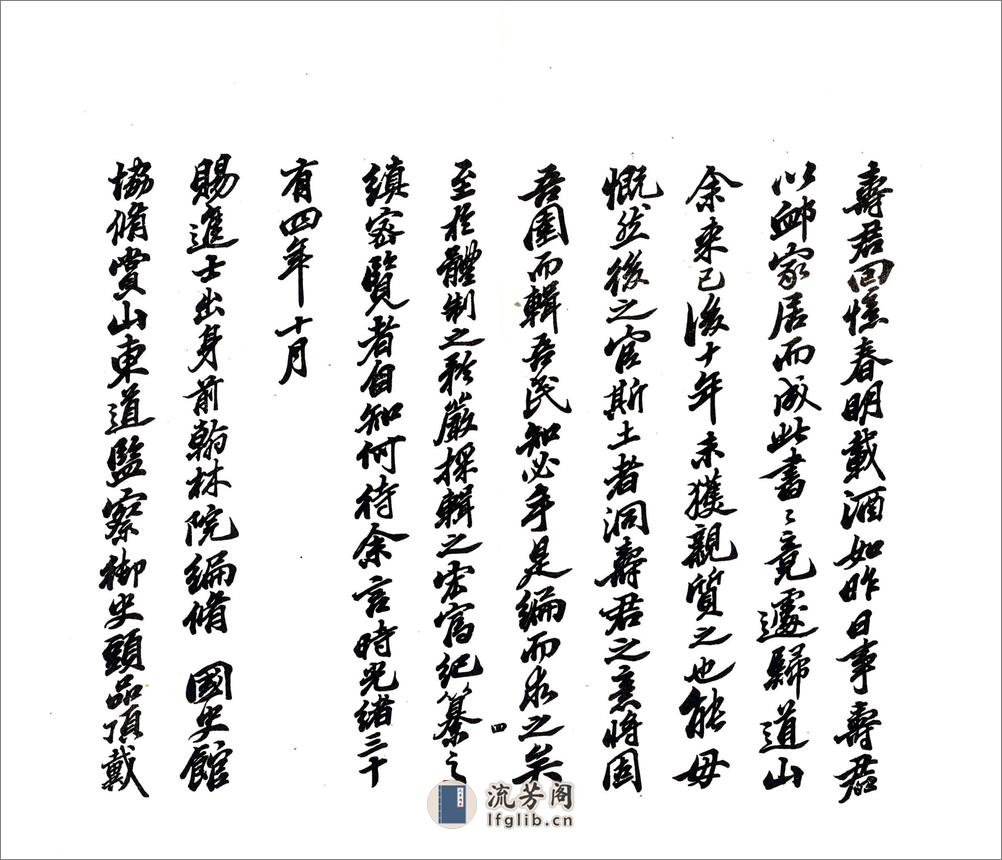 壽君回憶春明載酒如昨日事壽君
以䘏家居而成此書〻竟遽歸道山
余來已後十年未獲親質之也能毋
慨然後之官斯土者洞壽君之意將因
吾圉而輯吾民知必手是編而求之矣
至於體制之矜嚴採輯之宏富紀纂之
縝密覽者自知何待余言時光緒三十
有四年十月
賜進士出身前翰林院編脩 國史館
協脩賞山東道監察御史頭品頂戴
四
流芳阁
lfglib.cn